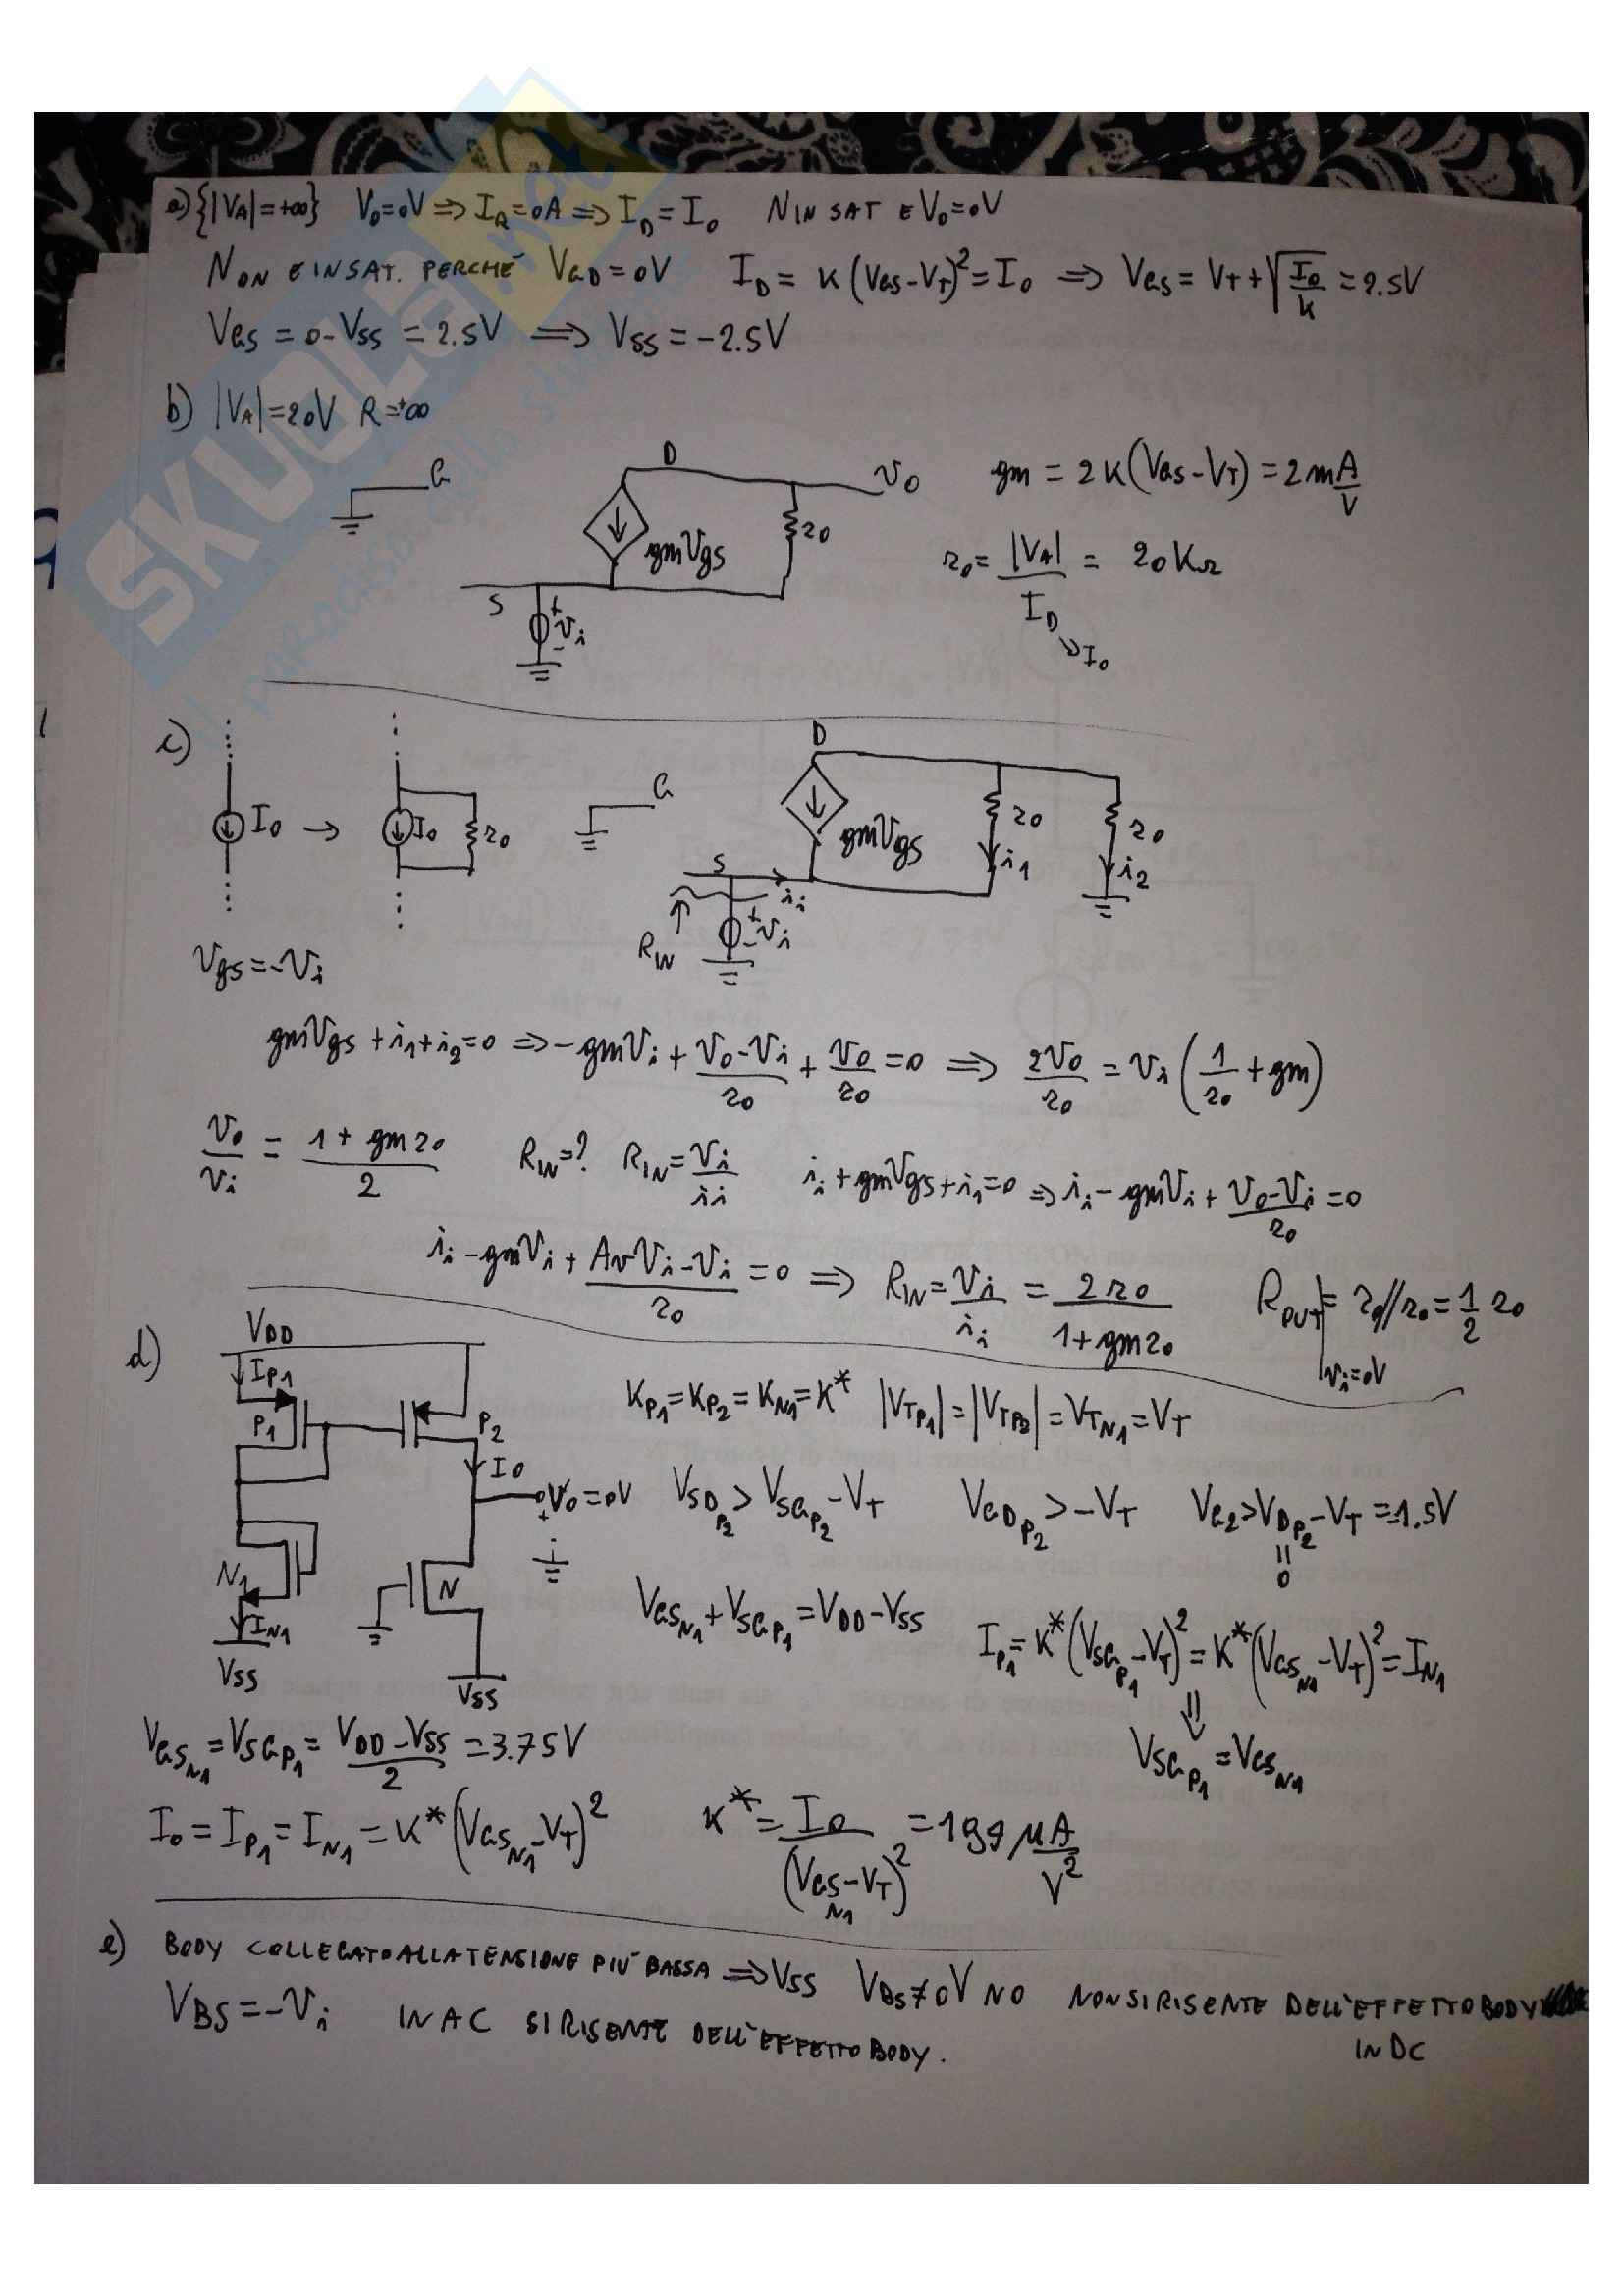 a) {|VA|=+∞} Vo=0V ⇒ IR=0A ⇒ ID=Io N IN SAT E Vo=0V
NON E IN SAT. PERCHÉ VGD=0V ID= K(VGS-VT)²=Io ⇒ VGS= VT+√(Io/K) =2.5V
VGS = 0-VSS = 2.5V ⇒ VSS=-2.5V
b) |VA|=20V R=+∞
G D vo gm = 2K(VGS-VT)=2mA/V
gmvgs ro
S + vi -
ro= |VA|/ID = 20KΩ
↘Io
c) Io → Io ro
G D gmvgs ro i1 ro i2
S ii RIN + vi -
vgs=-vi
gmvgs+i1+i2=0 ⇒ -gmvi+(vo-vi)/ro+vo/ro=0 ⇒ 2vo/ro = vi(1/ro+gm)
vo/vi = (1+gmro)/2 RIN=? RIN=vi/ii ii+gmvgs+i1=0 ⇒ ii-gmvi+(vo-vi)/ro=0
ii-gmvi+(Avvi-vi)/ro=0 ⇒ RIN=vi/ii = 2ro/(1+gmro) ROUT|vi=0V = ro//ro=1/2 ro
d) VDD
IP1 P1 P2 Io
Vo=0V + -
N1 IN1 N
VSS VSS
KP1=KP2=KN1=K* |VTP1|=|VTP2|=VTN1=VT
VSDP2>VSGP2-VT VGDP2>-VT VG2>VDP2-VT=-1.5V
=
0
VGSN1+VSGP1=VDD-VSS IP1=K*(VSGP1-VT)²=K*(VGSN1-VT)²=IN1
⇓
VSGP1=VGSN1
VGSN1=VSGP1=(VDD-VSS)/2=3.75V
Io=IP1=IN1=K*(VGSN1-VT)² K*=Io/(VGSN1-VT)²=199μA/V²
e) BODY COLLEGATO ALLA TENSIONE PIÙ BASSA ⇒ VSS VBS≠0V NO NON SI RISENTE DELL'EFFETTO BODY
IN DC
VBS=-vi IN AC SI RISENTE DELL'EFFETTO BODY.
SKUOLA.net